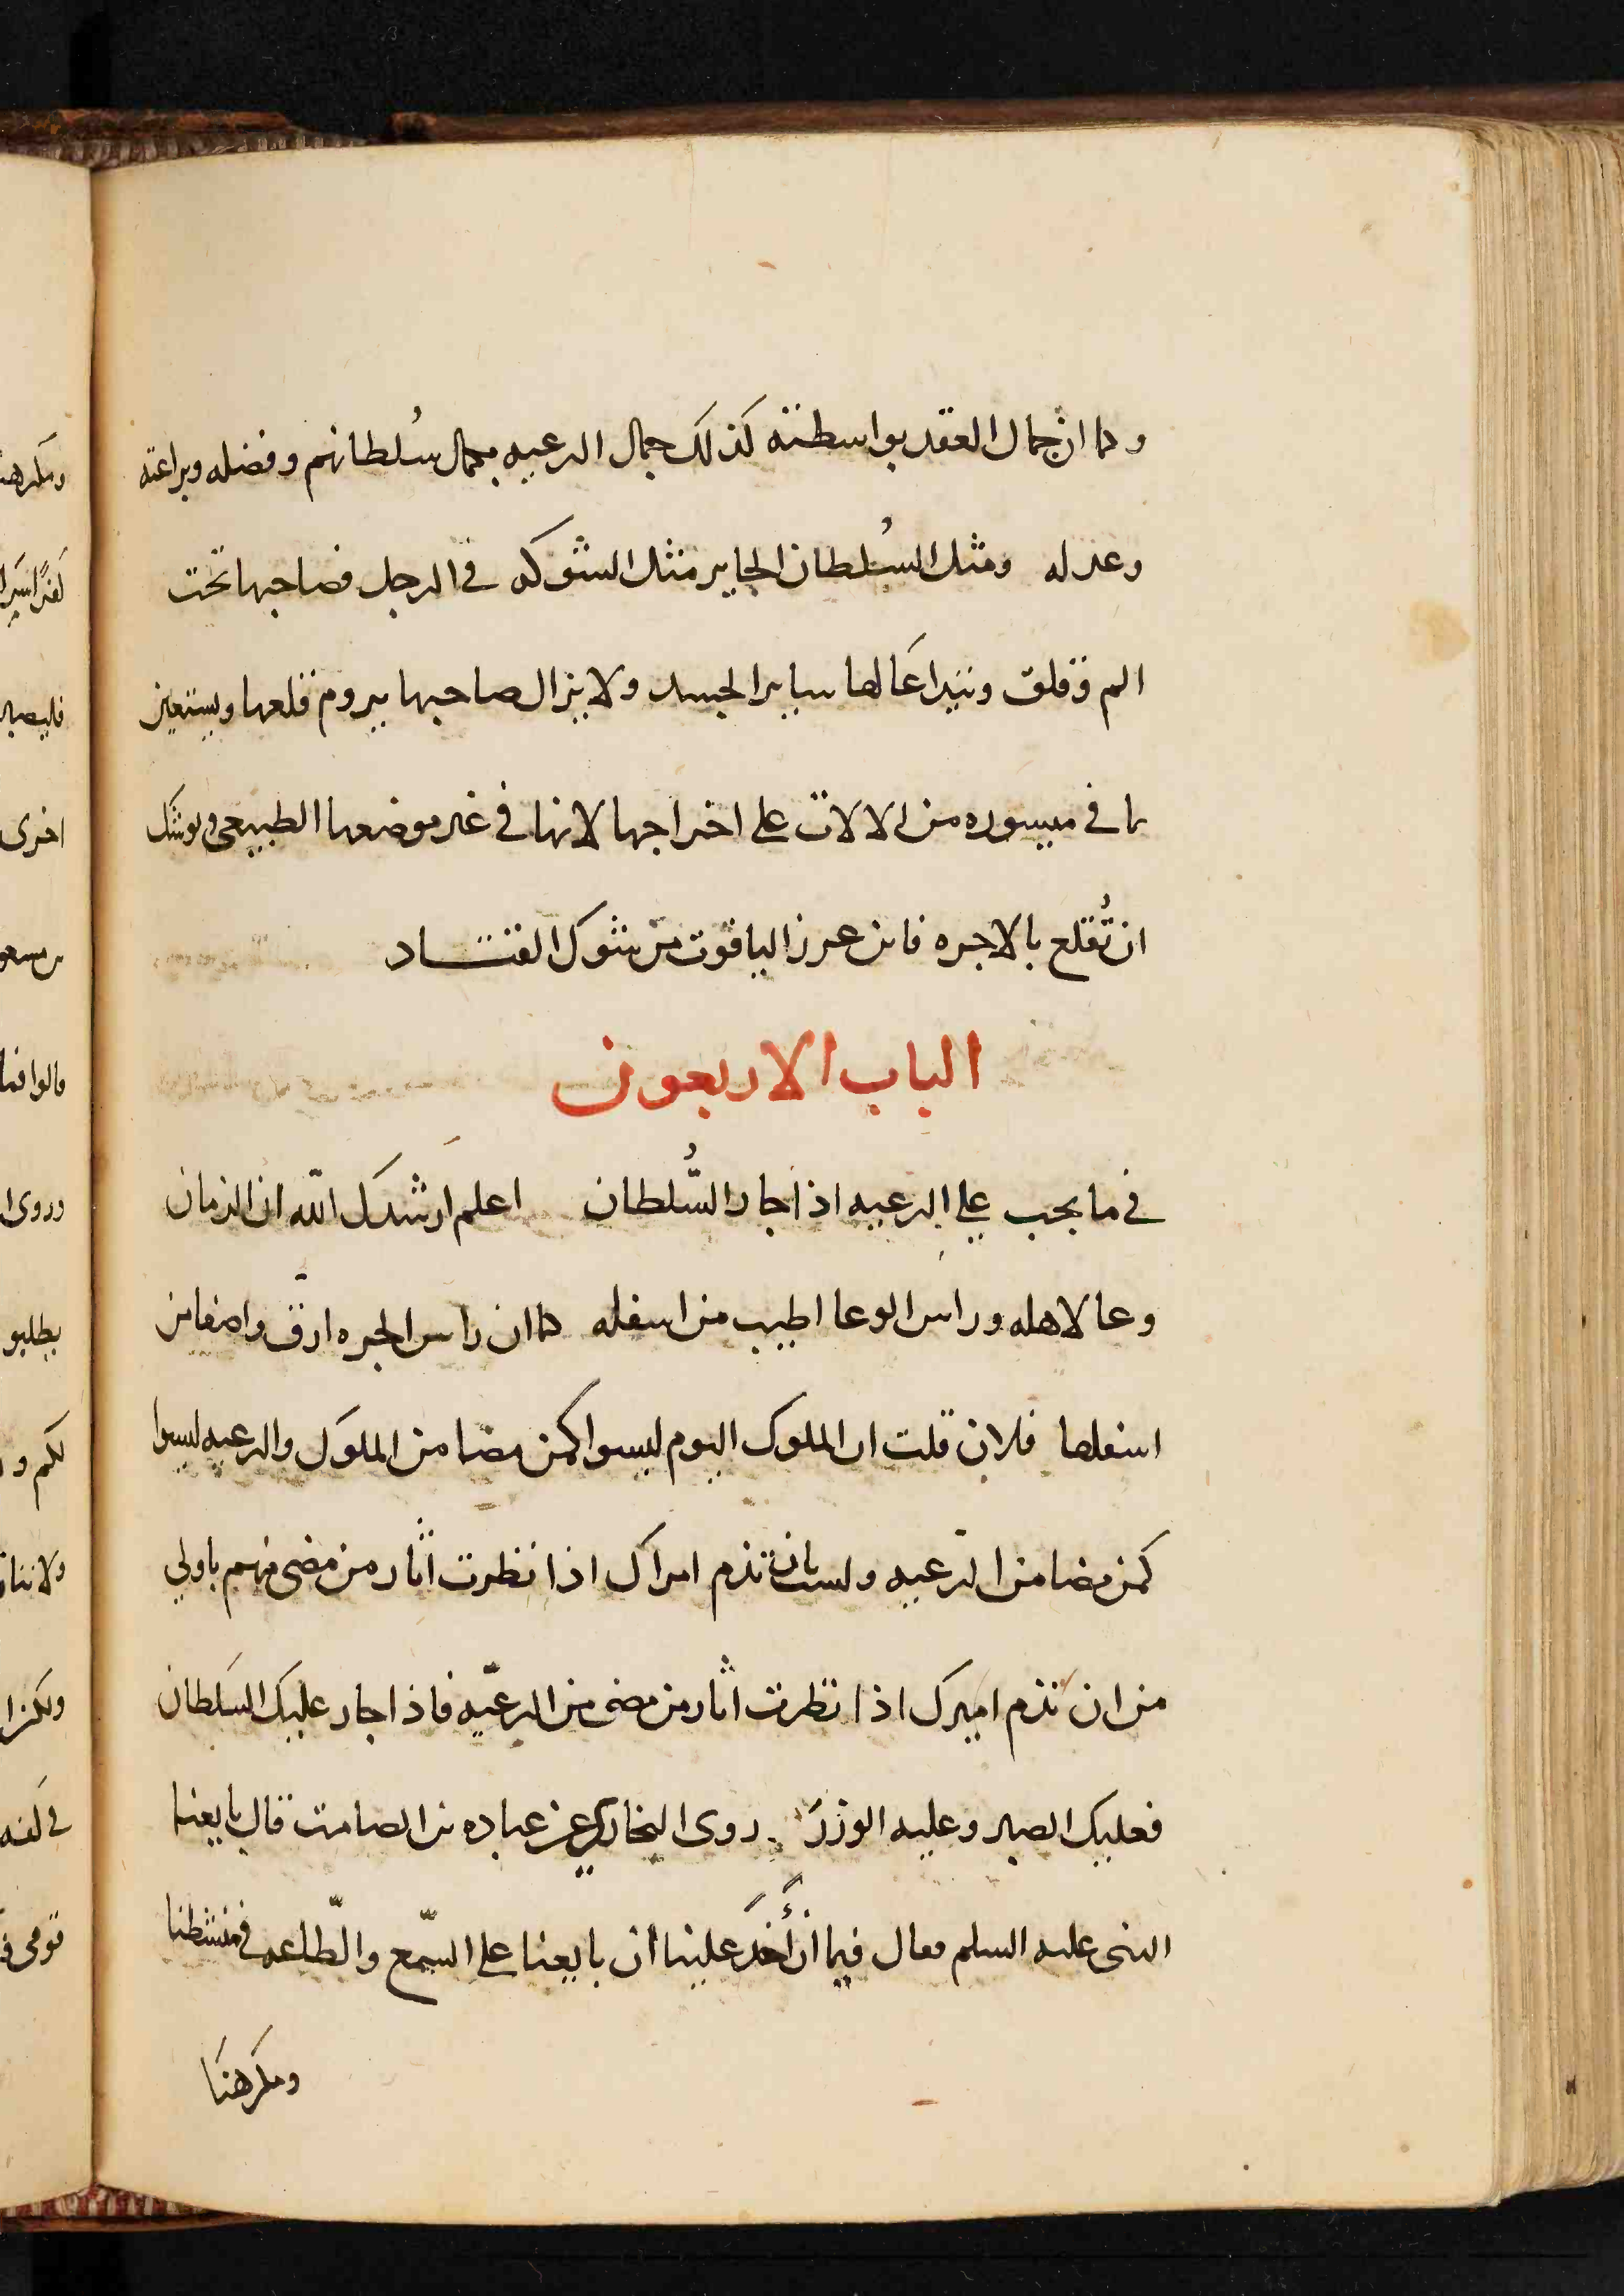 وكما ان جمال العقد بواسطته كذلك جمال الرعيه بجمال سُلطانهم وفضله وبراعته
وعدله ومثل السُلطان الجاير مثل الشوكه في الرجل فصاحبها تحت
الم وقلق ويتداعَا لها ساير الجسد ولا يزال صاحبها يروم قلعها ويستعين
بما في ميسوره من الالات على اخراجها لانها في غير موضعها الطبيعى ويوشك
ان تُقلع بالاجره فاين عرز الياقوت من شوك القتاد
الباب الاربعون
في ما يجب على الرعيه اذا جار السُّلطان اعلم ارشدك الله ان الزمان
وعا لاهله وراس الوعا اطيب من اسفله كما ان راس الجره ارق واصفا من
اسفلها فلان قلت ان الملوك اليوم ليسوا كمن مضا من الملوك والرعيه ليسوا
كمن مضا من الرّعيه ولست بان تذم امراك اذا نظرت اثار من مضى منهم باولي
من ان تذم اميرك اذا نظرت اثار من مضى من الرعيّه فاذا جار عليك السَلطان
فعليك الصبر وعليه الوزرَ روى البخاري عن عباده بن الصامت قال بايعنا
النبى عليه السلم فقال فيما أخذَ علينا أن بايعنا على السّمع والطّاعه في منشطنا
ومكرهنَا
ومكرهنا
اخرى